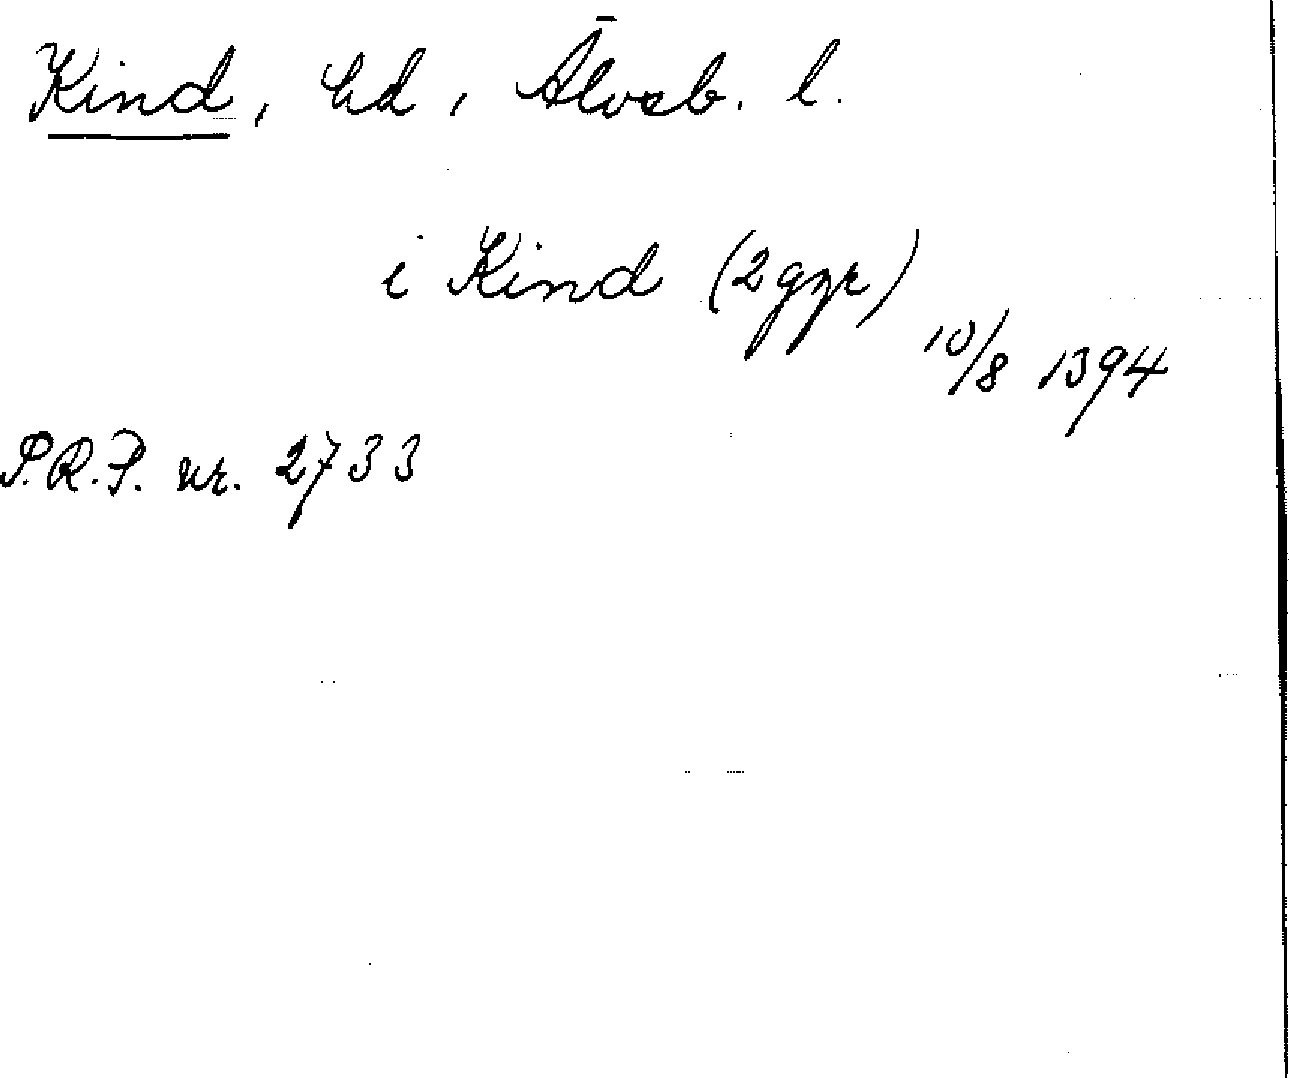 Kind, hd, Älvsb. l.
i Kind (2 ggr)
10/8 1394
P.R.P. nr. 2733